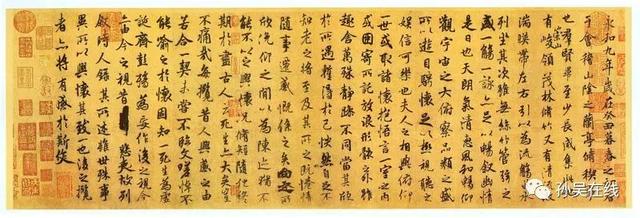 永和九年歲在癸丑暮春之初會
于會稽山陰之蘭亭脩稧事
也羣賢畢至少長咸集此地
有崇山峻領茂林脩竹又有清流激
湍暎帶左右引以為流觴曲水
列坐其次雖無絲竹管弦之
盛一觴一詠亦足以暢敘幽情
是日也天朗氣清惠風和暢仰
觀宇宙之大俯察品類之盛
所以遊目騁懷足以極視聽之
娛信可樂也夫人之相與俯仰
一世或取諸懷抱悟言一室之內
或因寄所託放浪形骸之外雖
趣舍萬殊靜躁不同當其欣
於所遇蹔得於己怏然自足不
知老之將至及其所之既惓情
隨事遷感慨係之矣向之所
欣俛仰之閒以為陳迹猶不
能不以之興懷況脩短隨化終
期於盡古人云死生亦大矣豈
不痛哉每攬昔人興感之由
若合一契未嘗不臨文嗟悼不
能喻之於懷固知一死生為虛
誕齊彭殤為妄作後之視今
亦由今之視昔悲夫故列
敘時人錄其所述雖世殊事
異所以興懷其致一也後之攬
者亦將有感於斯文
孙吴在线